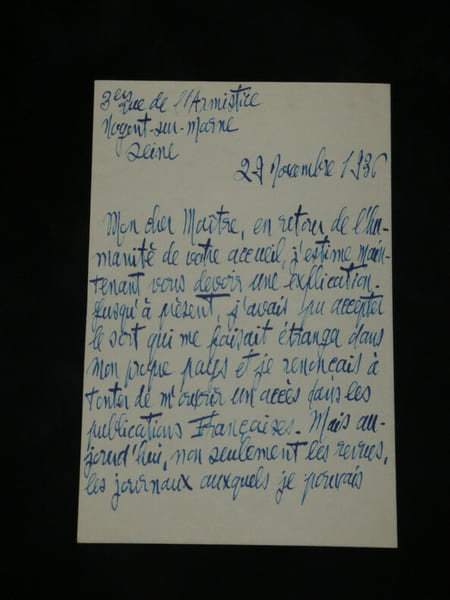 3 rue de l'Armistice
Nogent-sur-Marne
Seine
29 Novembre 1936
Mon cher Maître, en retour de l'hu-
manité de votre accueil, j'estime main-
tenant vous devoir une explication.
Jusqu'à présent, j'avais pu accepter
le sort qui me faisait étranger dans
mon propre pays et je renonçais à
tenter de m'ouvrir un accès dans les
publications Françaises. Mais au-
jourd'hui, non seulement les revues,
les journaux auxquels je pouvais